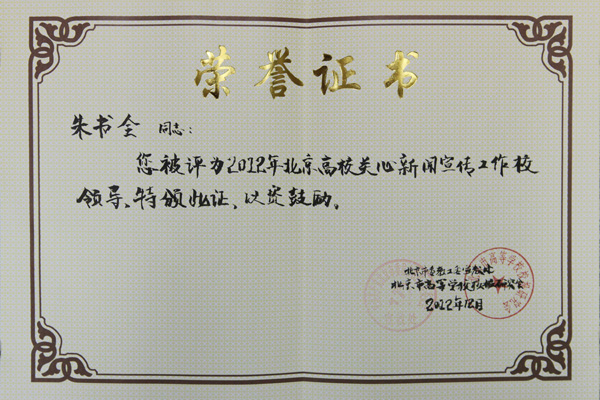 荣誉证书
朱书全 同志：
您被评为2012年北京高校关心新闻宣传工作校
领导、特颁此证、以资鼓励。
北京市委教工委宣教处
北京市高等学校校报研究会
2012年12月